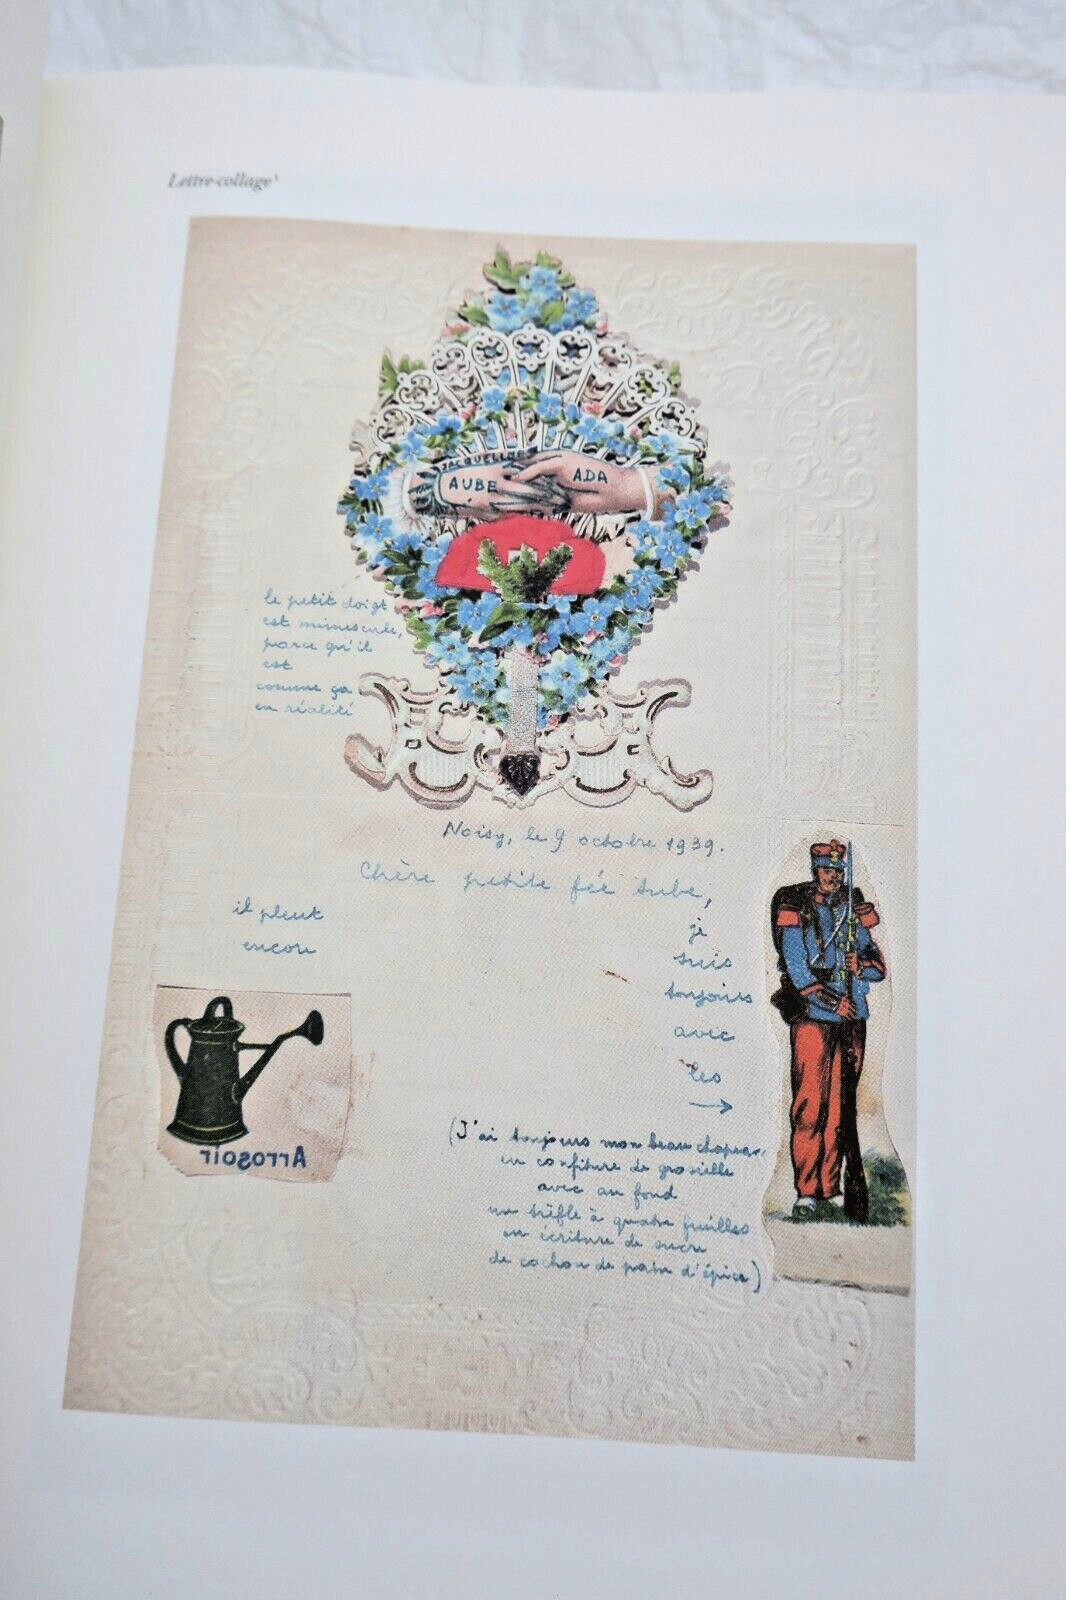 Lettre-collage¹
JACQUELINE
AUBE
ADA
le petit doigt
est minuscule,
parce qu'il
est
comme ça
en réalité
Noisy, le 9 octobre 1939.
Chère petite fée Aube,
il pleut
encore
je
suis
toujours
avec
les
→
Arrosoir
(J'ai toujours mon beau chapeau,
en confiture de groseille
avec au fond
un trèfle à quatre feuilles
en écriture de sucre
de cochon de pain d'épice)